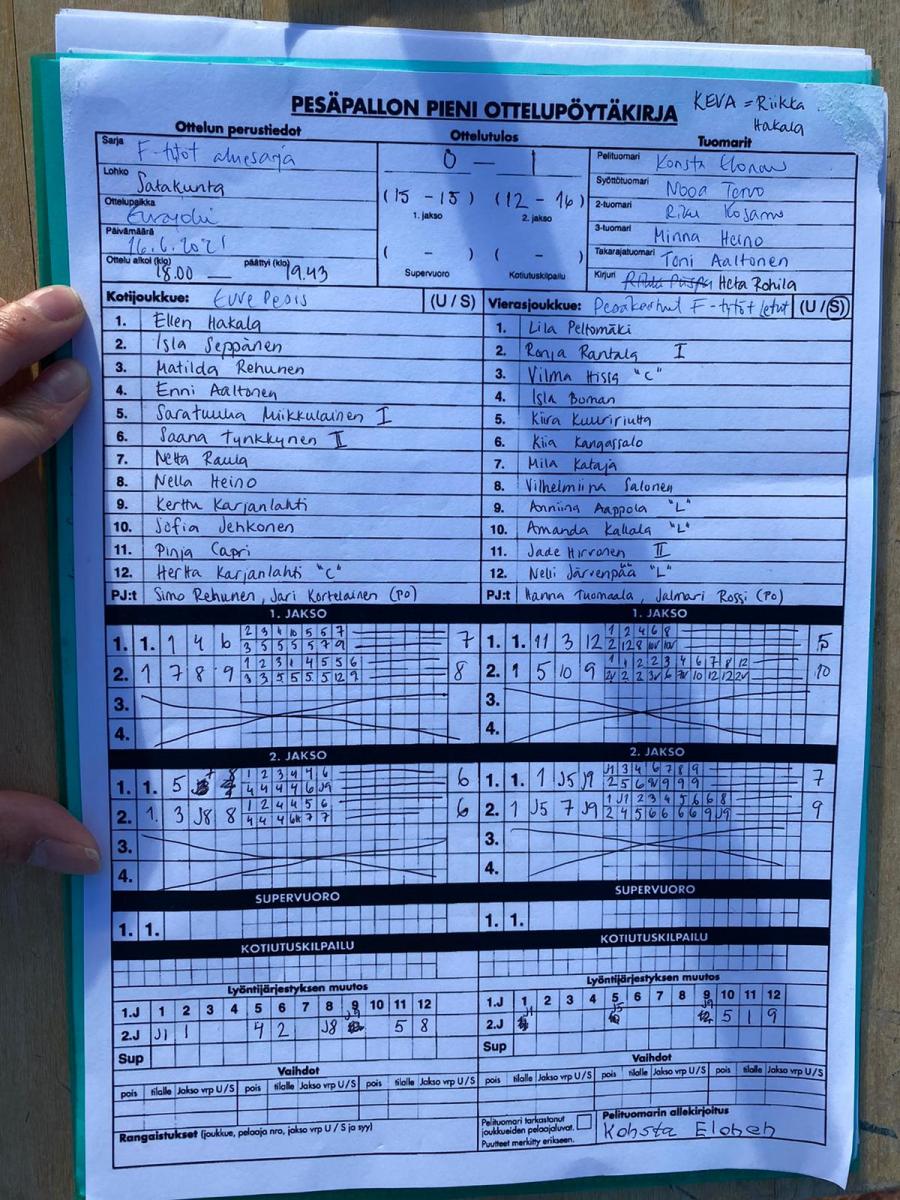 PESÄPALLON PIENI OTTELUPÖYTÄKIRJA
KEVA = Riikka Hakala
Ottelun perustiedot
Sarja F-tytöt aluesarja
Lohko Satakunta
Ottelupaikka Eurajoki
Päivämäärä 16.6.2021
Ottelu alkoi (klo) 18.00 — päättyi (klo) 19.43
Ottelutulos
0 — 1
(15 - 15) (12 - 16)
1. jakso 2. jakso
( - ) ( - )
Supervuoro Kotiutuskilpailu
Tuomarit
Pelituomari Konsta Elonen
Syöttötuomari Nooa Tervo
2-tuomari Riku
3-tuomari Minna Heino
Takarajatuomari Toni Aaltonen
Kirjuri Heta Rohila
Kotijoukkue: (U / S)
1. Ellen Hakala
2. Isla Seppänen
3. Matilda Rehunen
4. Enni Aaltonen
5. Miikkulainen I
6. Saana Tynkkynen II
7. Netta Raula
8. Nella Heino
9. Kerttu Karjanlahti
10. Sofia Jehkonen
11. Pinja Capri
12. Hertta Karjanlahti "C"
PJ:t Simo Rehunen, Jari Kortelainen (PO)
Vierasjoukkue: Pesäkarhut F-tytöt letut (U / S)
1. Lila Peltomäki
2. Ronja Rantala I
3. Vilma Hissa "C"
4. Isla Boman
5. Kiira
6. Kiia Kangassalo
7. Mila Kataja
8. Vilhelmiina Salonen
9. Anniina Aappola "L"
10. Amanda Kallala "L"
11. Jade Hirvonen II
12. Nelli Järvenpää "L"
PJ:t Hanna Tuomaala, Jalmari Rossi (PO)
1. JAKSO
1. 1. 1 4 6 7
2. 1 7 8 9 8
3.
4.
1. JAKSO
1. 1. 11 3 12 5
2. 1 5 10 9 10
3.
4.
2. JAKSO
1. 1. 5 6
2. 1. 3 J8 8 6
3.
4.
2. JAKSO
1. 1. 1 J5 J9 7
2. 1 J5 7 J9 9
3.
4.
SUPERVUORO
1. 1.
SUPERVUORO
1. 1.
KOTIUTUSKILPAILU
KOTIUTUSKILPAILU
Lyöntijärjestyksen muutos
1.J 1 2 3 4 5 6 7 8 9 10 11 12
2.J J1 1 4 2 J8 J9 5 8
Sup
Lyöntijärjestyksen muutos
1.J 1 2 3 4 5 6 7 8 9 10 11 12
2.J J1 J5 J9 5 1 9
Sup
Vaihdot
pois tilalle Jakso vrp U / S pois tilalle Jakso vrp U / S pois tilalle Jakso vrp U / S
Vaihdot
pois tilalle Jakso vrp U / S pois tilalle Jakso vrp U / S pois tilalle Jakso vrp U / S
Rangaistukset (joukkue, pelaaja nro, jakso vrp U / S ja syy)
Pelituomari tarkastanut
joukkueiden pelaajaluvat.
Puutteet merkitty erikseen.
Pelituomarin allekirjoitus
Konsta Elonen